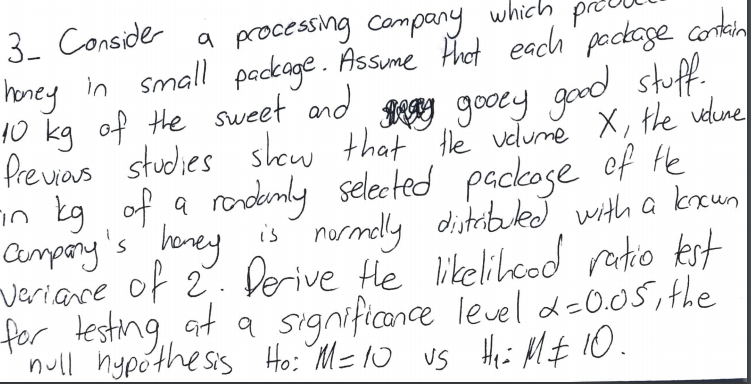 3- Consider a processing company which
honey in small package. Assume that each package contain
10 kg of the sweet and gooey good stuff.
Previous studies show that the volume X, the volume
in kg of a randomly selected package of the
Company's honey is normally distributed with a known
variance of 2. Derive the likelihood ratio test
for testing at a significance level α=0.05, the
null hypothesis H0: M=10 vs H1: M≠10.